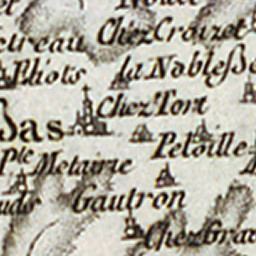 Chez Croizet
Pliots
la Noblesse
Chez Tort
Bas
Peloille
Ple Metairie
Gautron
Chez Grau